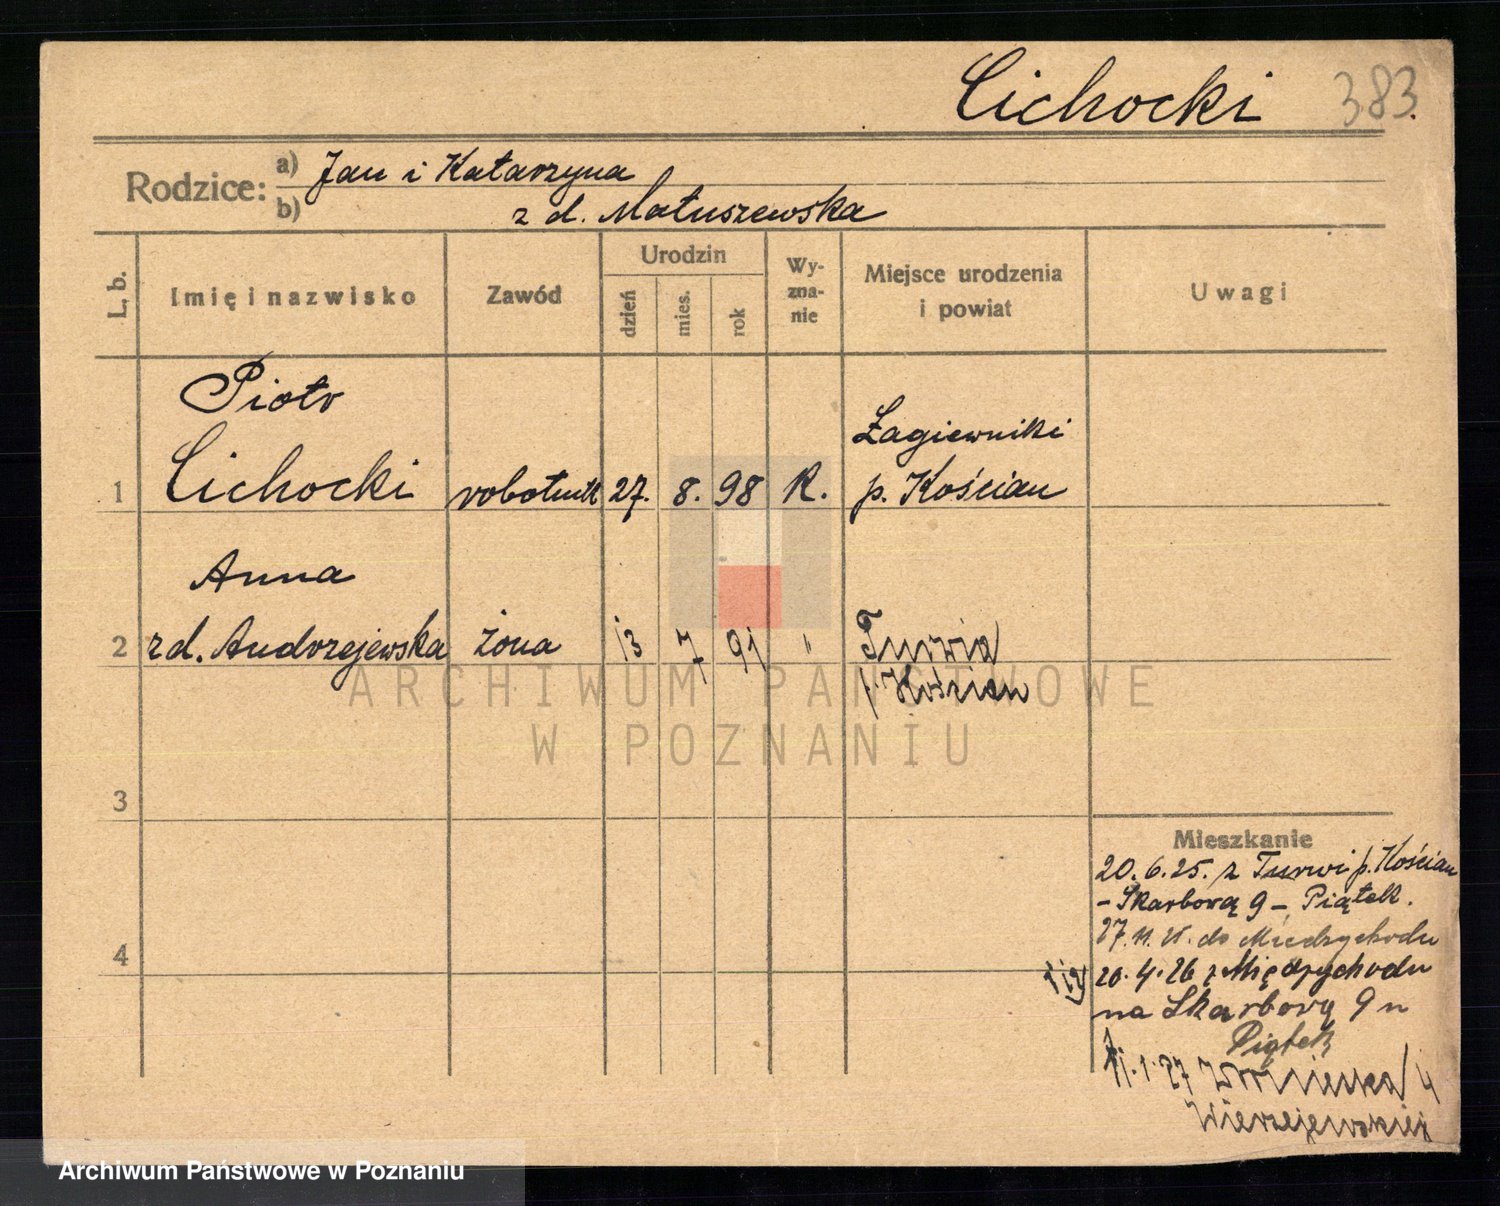 Cichocki 383.
Rodzice: a) Jan i Katarzyna
b) z d. Matuszewska
L. b. Imię i nazwisko Zawód Urodzin dzień mies. rok Wyzna-nie Miejsce urodzenia i powiat Uwagi
Piotr
Łagiewniki
1 Cichocki robotnik 27. 8. 98 R. p. Kościan
Anna
2 z d. Andrzejewska żona 13 7 91 " Turwia
p. Kościan
ARCHIWUM PAŃSTWOWE
W POZNANIU
3
Mieszkanie
20.6.25. z Turwi p. Kościan
- Skarbową 9 - Piątek.
4 27.11.25. do Międzychodu
20.4.26 z Międzychodu
na Skarbową 9 u
Piątek
11.1.27 4
Wierzejewskiej
Archiwum Państwowe w Poznaniu